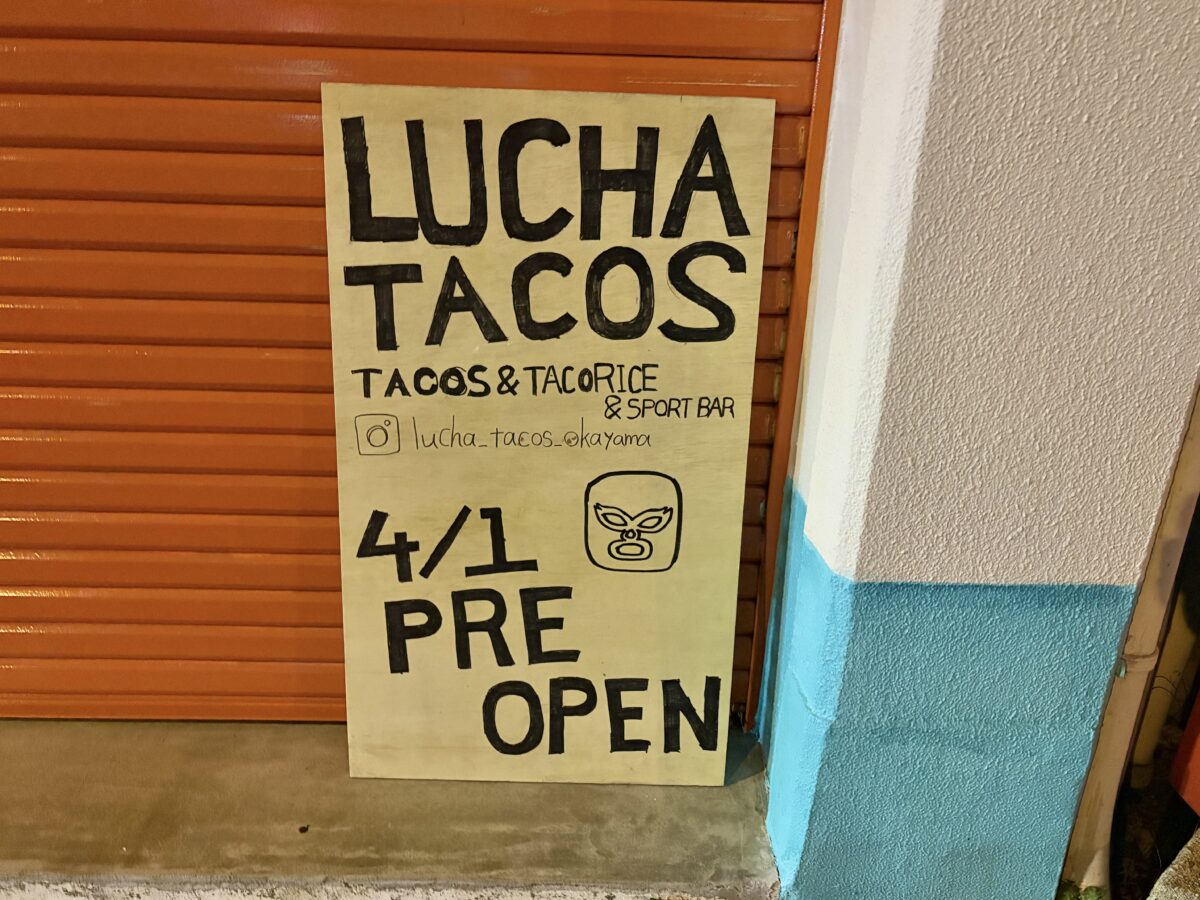 LUCHA
TACOS
TACOS & TACORICE
& SPORT BAR
lucha_tacos_okayama
4/1
PRE
OPEN